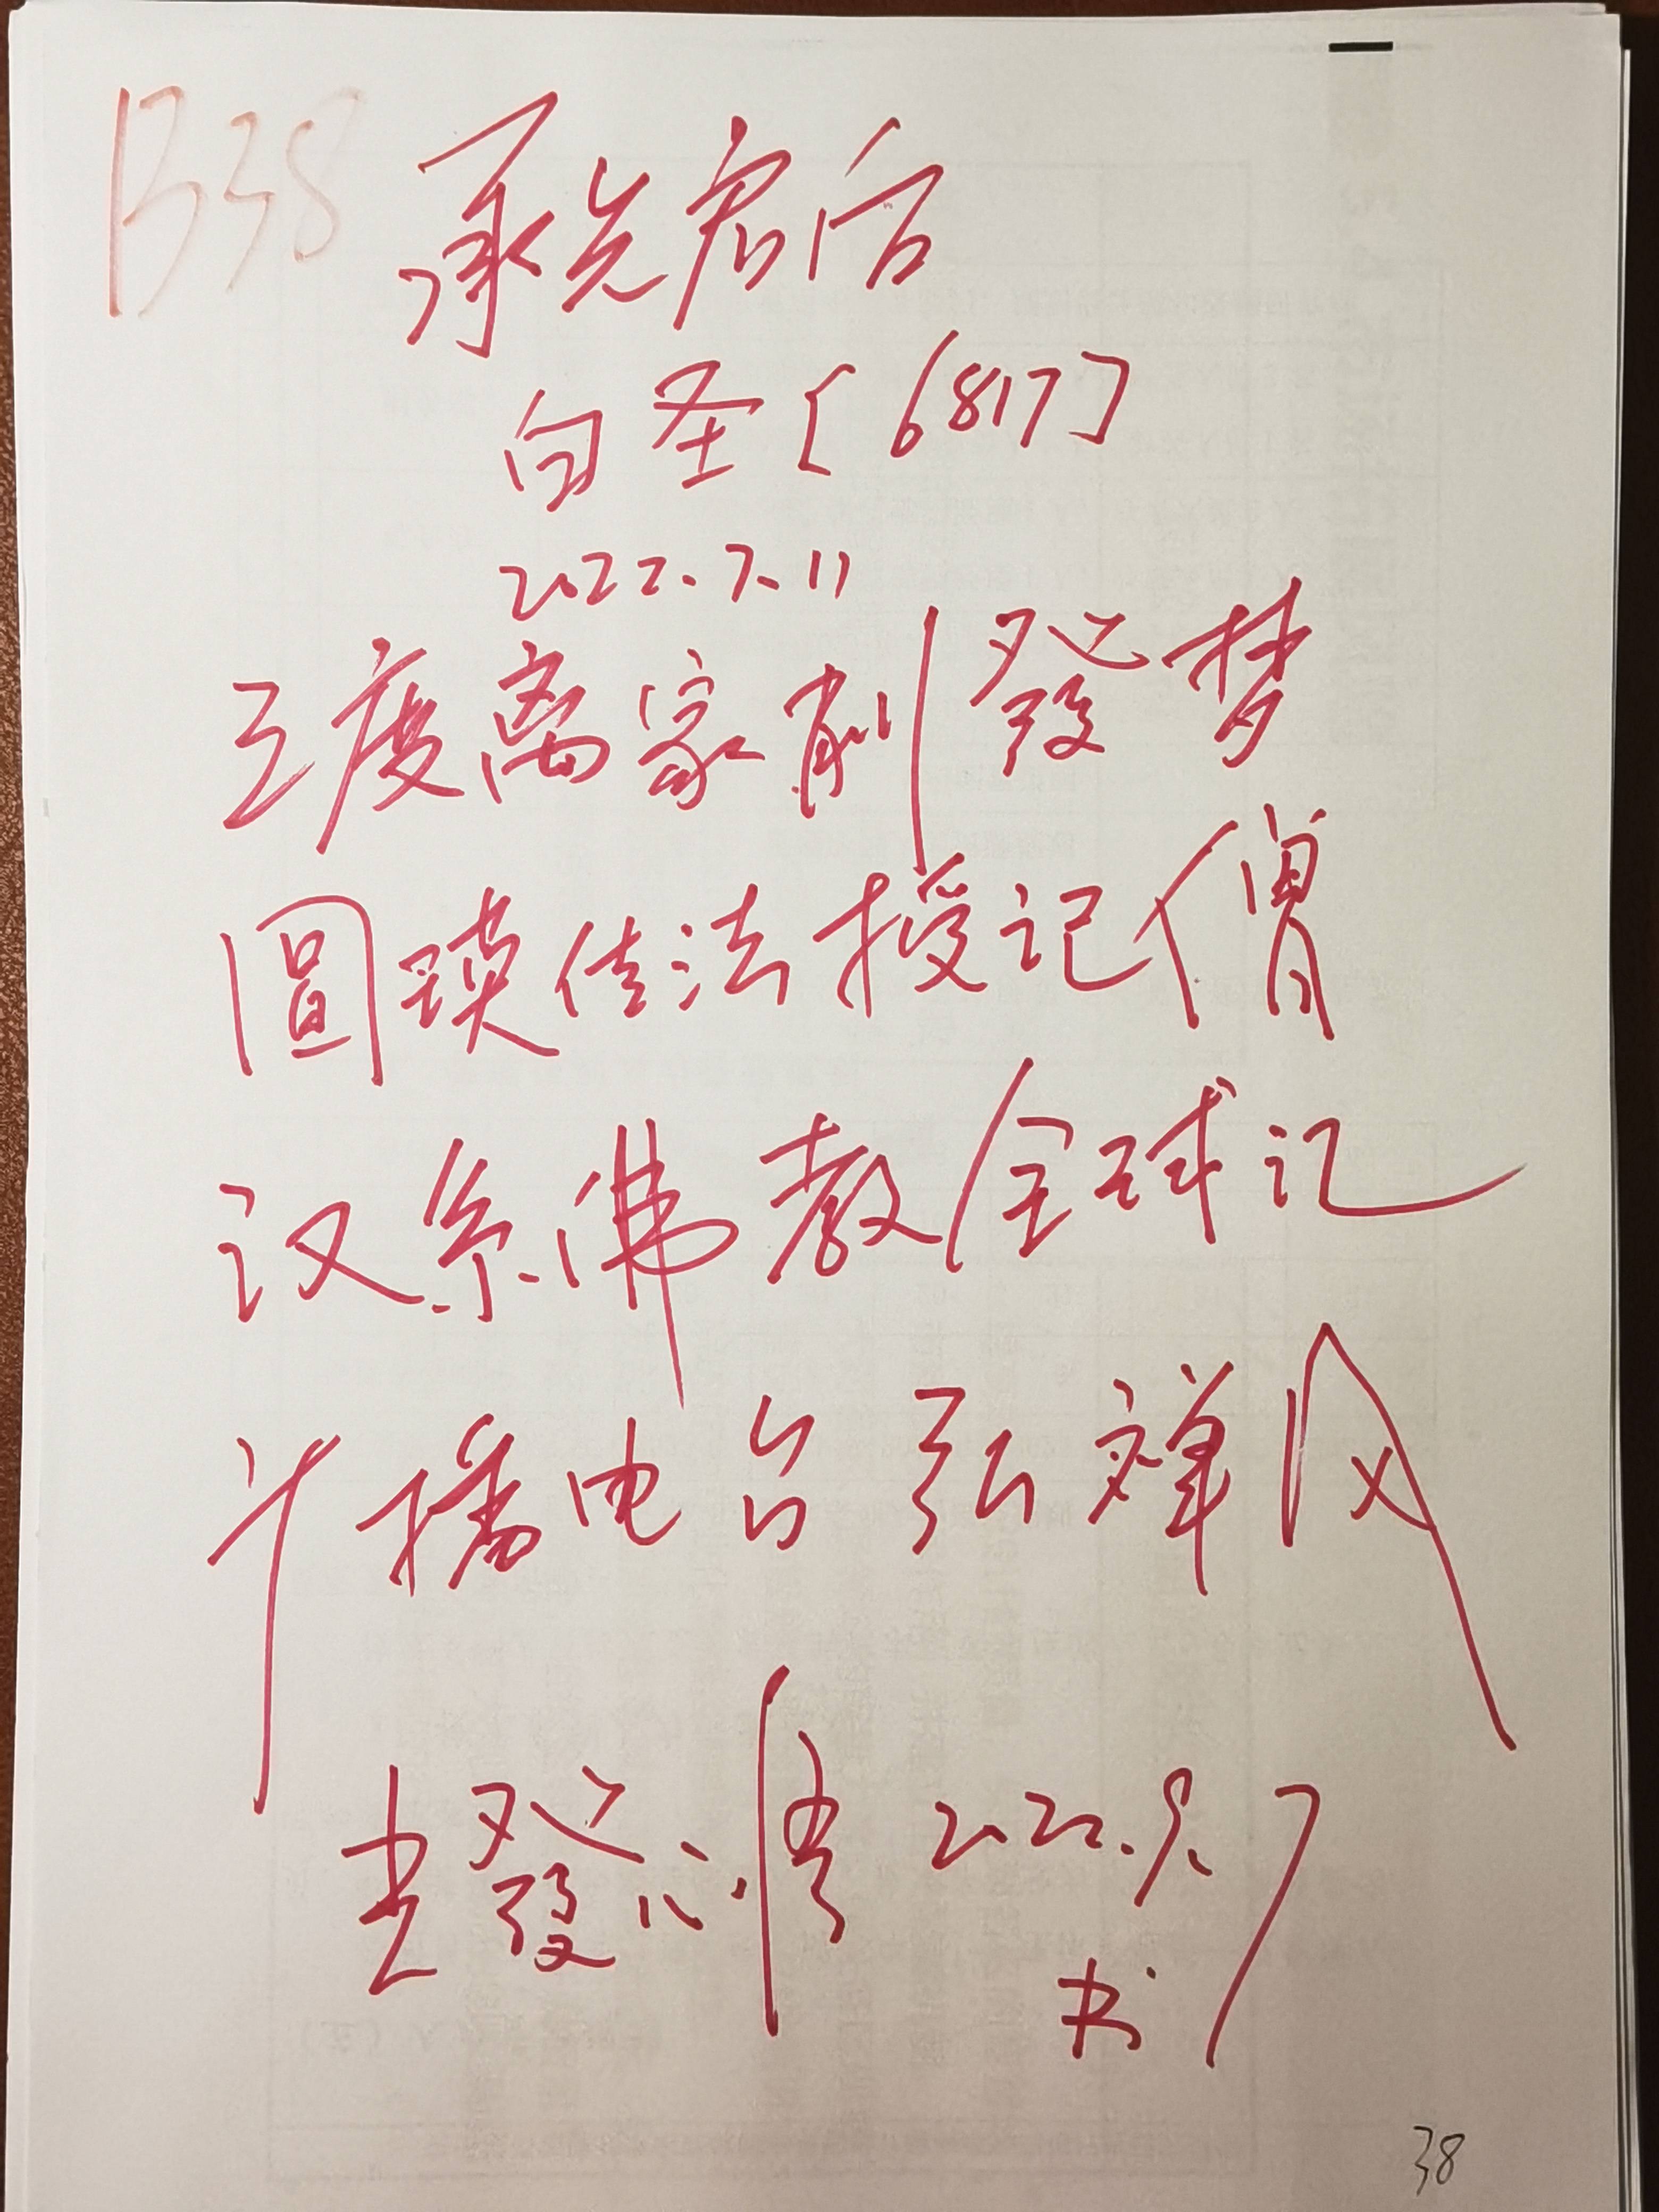 B38
承先启后
白圣[6817]
2022.7.11
三度离家削發梦
圓瑛传法授记僧
汉系佛教全球记
广播电台弘禅风
光發心悟 2022.9.17
书
38